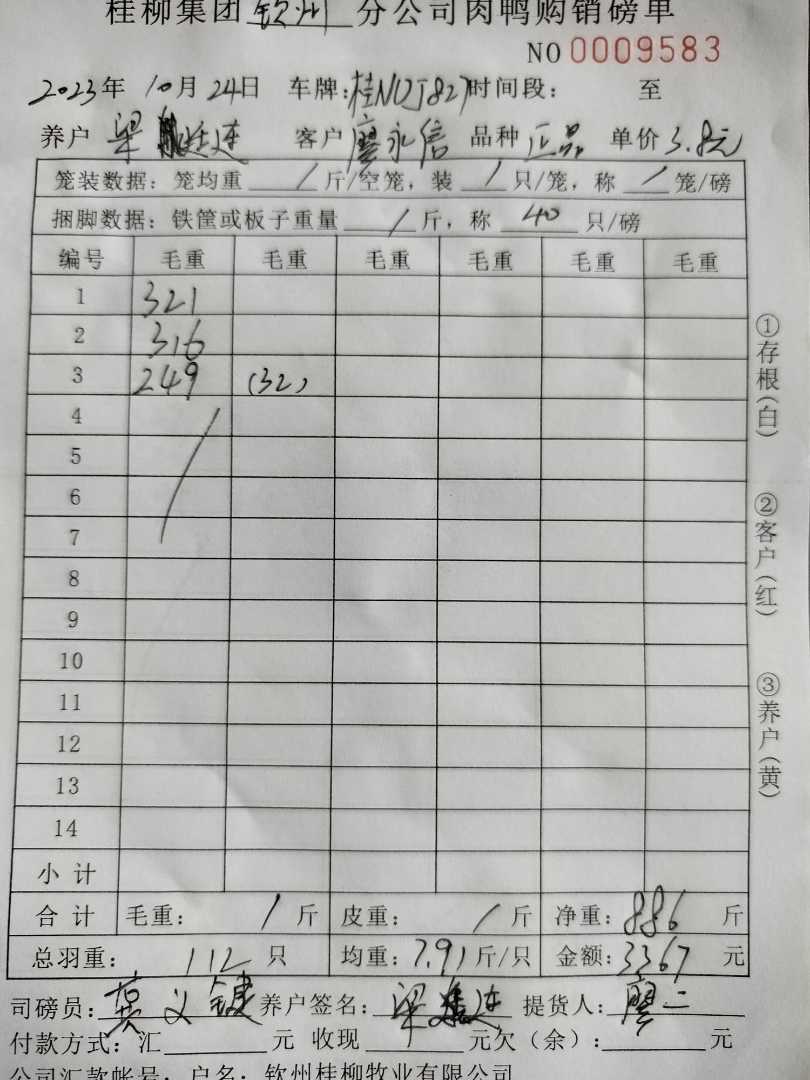 桂柳集团 钦州 分公司肉鸭购销磅单
NO 0009583
2023年 10月 24日 车牌:桂NQJ827 时间段: 至
养户 梁 连 客户 廖永信 品种 正品 单价 3.8元
笼装数据: 笼均重 / 斤/空笼, 装 / 只/笼, 称 / 笼/磅
捆脚数据: 铁筐或板子重量 / 斤, 称 40 只/磅
编号 毛重 毛重 毛重 毛重 毛重 毛重
1 321
2 316
3 249 (32)
4
5
6
7
8
9
10
11
12
13
14
小 计
合 计 毛重: / 斤 皮重: / 斤 净重: 886 斤
总羽重: 112 只 均重: 7.91 斤/只 金额: 3367 元
司磅员: 莫义键 养户签名: 梁 连 提货人: 廖二
付款方式: 汇 元 收现 元欠(余): 元
公司汇款帐号: 户名: 钦州桂柳牧业有限公司
①存根(白)
②客户(红)
③养户(黄)